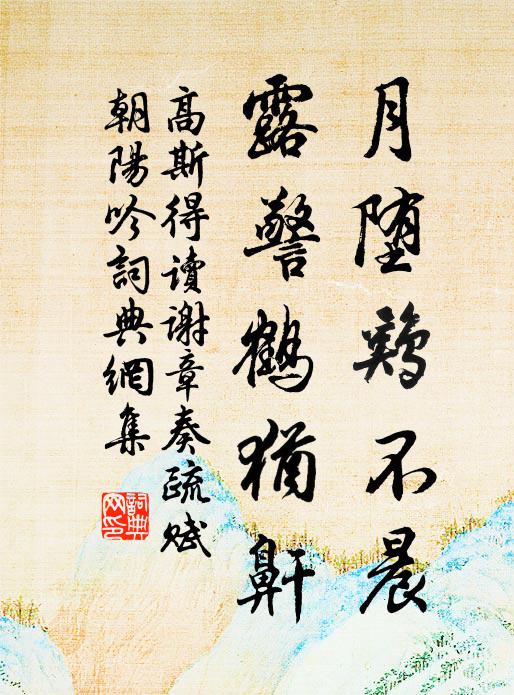 月堕鷄不晨
露警鶴猶鼾
高斯得讀謝章奏疏賦
朝陽吟詞典網集
詞典网印